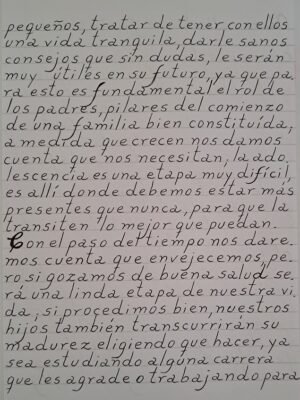 pequeños, tratar de tener con ellos
una vida tranquila, darle sanos
consejos que sin dudas, le serán
muy útiles en su futuro, ya que pa
ra esto es fundamental el rol de
los padres, pilares del comienzo
de una familia bien constituída,
a medida que crecen nos damos
cuenta que nos necesitan, la ado
lescencia es una etapa muy difícil,
es allí donde debemos estar más
presentes que nunca, para que la
transiten lo mejor que puedan.
Con el paso del tiempo nos dare-
mos cuenta que envejecemos, pe-
ro si gozamos de buena salud se-
rá una linda etapa de nuestra vi-
da, si procedimos bien, nuestros
hijos también transcurrirán su
madurez eligiendo que hacer, ya
sea estudiando alguna carrera
que les agrade o trabajando para